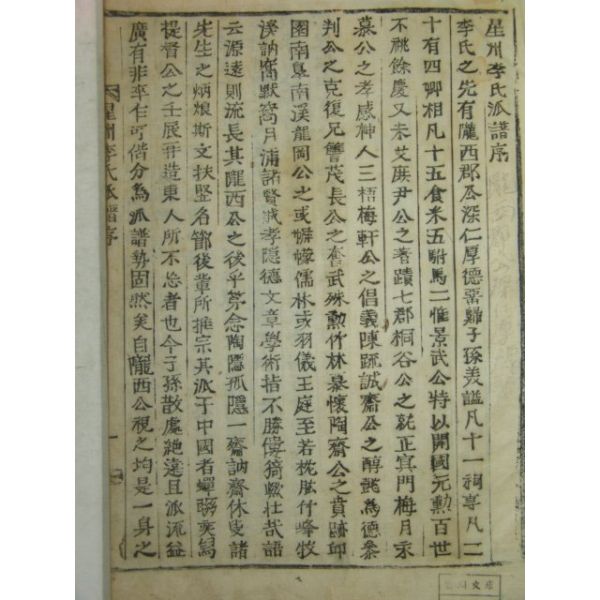 星州李氏派譜序
李氏之先有隴西郡公深仁厚德蕃難子孫美謚凡十一祠享凡二
十有四卿相凡十五食采五駙馬一惟景武公特以開國元勳百世
不祧餘慶又未艾麻尹公之著蹟七郡桐谷公之就正寘門梅月
慕公之孝感神人三梧梅軒公之倡義陳疏誠齋公之醇懿爲德參
判公之克復兄讐茂長公之奮武殊勳竹林慕懷陶齋公之賁跡邱
園南皐南溪龍岡公之或 幪儒林或羽儀王庭至若枕肱竹峰牧
溪訥窩默窩月浦諸賢哉孝隱德文章學術指不勝僂猗歟壯哉語
云源遠則流長其隴西公之後乎第念陶隱孤隱一齋訥齋休叟諸
先生之炳烺斯文扶竪名節後輩所推宗其派于中國者蟬聯奕舄
提督公之壬辰再造東人所不忘者也今子孫散處絶遠且派流益
廣有非率乍可偕分爲派譜勢固然矣自隴西公視之均是一身之
星州李氏派譜序
一